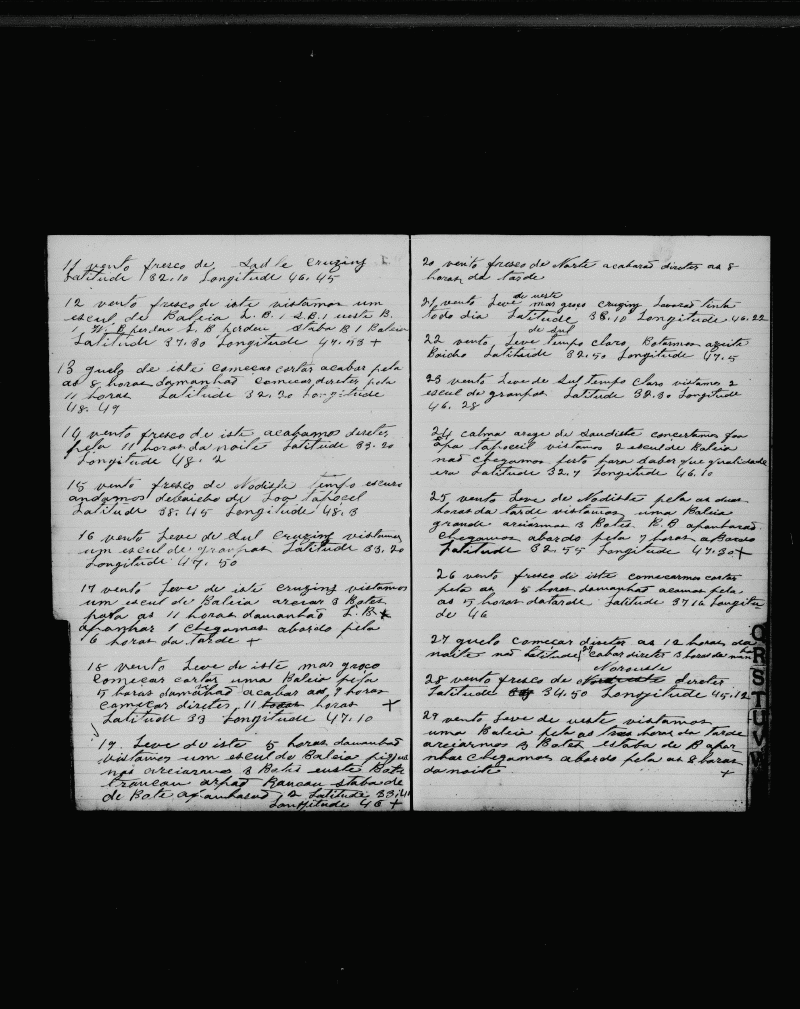 11 vento fresco de Sudle Cruzing
Latitude 32.10 Longitude 46.45
12 vento fresco de iste vistamos um
escul de Baleia L. B. 1 S.B.1 ueste B.
1 B perdeu L. B perdeu Staba B 1 Baleia
Latitude 37.30 Longitude 47.53 +
13 guelo de iste comecas cortar acabar pela
as 8 horas damanhaõ comecar diretes pela
11 horas Latitude 32.20 Longitude
48.49
14 vento fresco de iste acabamos diretes
pela 11 horas da noite Latitude 33.20
Longitude 48.2
15 vento fresco de Nodiste tempo escuro
andamos debaicho de Loa tapocel
Latitude 38.45 Longitude 48.3
16 vento Leve de Sul Cruzing vistamos
um escul de granpas Latitude 33.20
Longitude 47.50
17 vento Leve de iste Cruzing vistamos
um escul de Baleia areiar 3 Botes
para as 11 horas damanhaõ L. B +
apanhar 1 Chegamos abordo pela
6 horas da tarde +
18 vento Leve de iste mas groço
Comecar cortar uma Baleia pela
5 horas damanhaõ acabar as 9 horas
Comecar diretes, 11 horas +
Latitude 33 Longitude 47.10
19. Leve de iste 5 horas damanhaõ
vistamos um escul de Baleia
nos areiarmos 3 Botes ueste Bote
trancau arpaõ Rancau staba de
de Bate apanharaõ 2 Latitude 33.41
Longitude 46 +
20 vento fresco de Norte acabaraõ diretes as 8
horas da tarde
de ueste
21 vento Leve mas groço cruzing Lavaraõ tinta
todo dia Latitude 38.10 Longitude 46.22
de Sul
22 vento Leve tempo claro, Botarmos azeite
Baicho Latitude 32.50 Longitude 47.5
23 vento Leve de Sul tempo claro vistamos 2
escul de granpas Latitude 32.30 Longitude
46.28
24 calma arage de Saudiste concertamos
tapocel vistamos 2 escul de Baleia
naõ chegamos perto para saber que qualidade
era Latitude 32.7 Longitude 46.10
25 vento Leve de Nodiste pela as duas
horas da tarde vistamos uma Baleia
grande areiarmos 3 Botes B.B apanharaõ
Chegamos abordo pela 7 horas a Bordo
Latitude 32.55 Longitude 47.30 +
26 vento fresco de iste comecarmos cortar
pela as 5 horas damanhaõ acamos pela
as 5 horas datarde Latitude 37 16 Longitu
de 46
27 guelo comecar diretes as 12 horas da
noite naõ latitude, cabar diretes 3 horas da
Noroeste
28 vento fresco de diretes
Latitude 34.50 Longitude 45.12
29 vento Leve de ueste vistamos
uma Baleia pela as tres horas da tarde
areiarmos 3 Botes staba de B apa
nhar Chegamos abordo pela as 8 horas
da noite +
Q
R
S
T
U
V
W